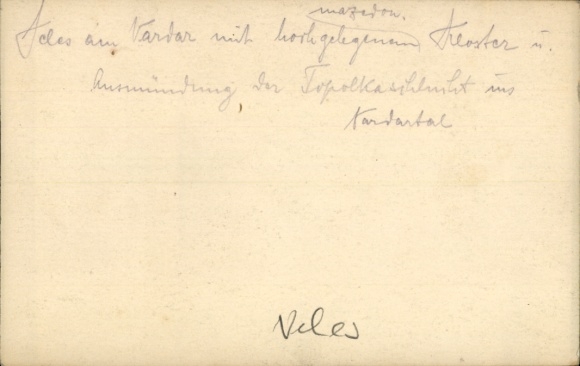 mazedon.
Veles am Vardar mit hochgelegenem Kloster u.
Ausmündung der Topolkaschlucht ins
Vardartal
Veles